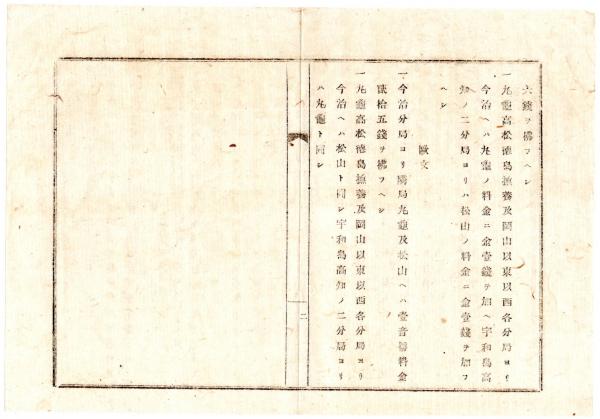 六錢ヲ拂フヘシ
一丸龜高松德島撫養及岡山以東以西各分局ヨリ
今治ヘハ丸龜ノ料金ニ金壹錢ヲ加ヘ宇和島高
知ノ二分局ヨリハ松山ノ料金ニ金壹錢ヲ加フ
ヘシ
歐文
一今治分局ヨリ隣局丸龜及松山ヘハ壹音信料金
貳拾五錢ヲ拂フヘシ
一丸龜高松德島撫養及岡山以東以西各分局ヨリ
今治ヘハ松山ト同シ宇和島高知ノ二分局ヨリ
ハ丸龜ト同シ
二